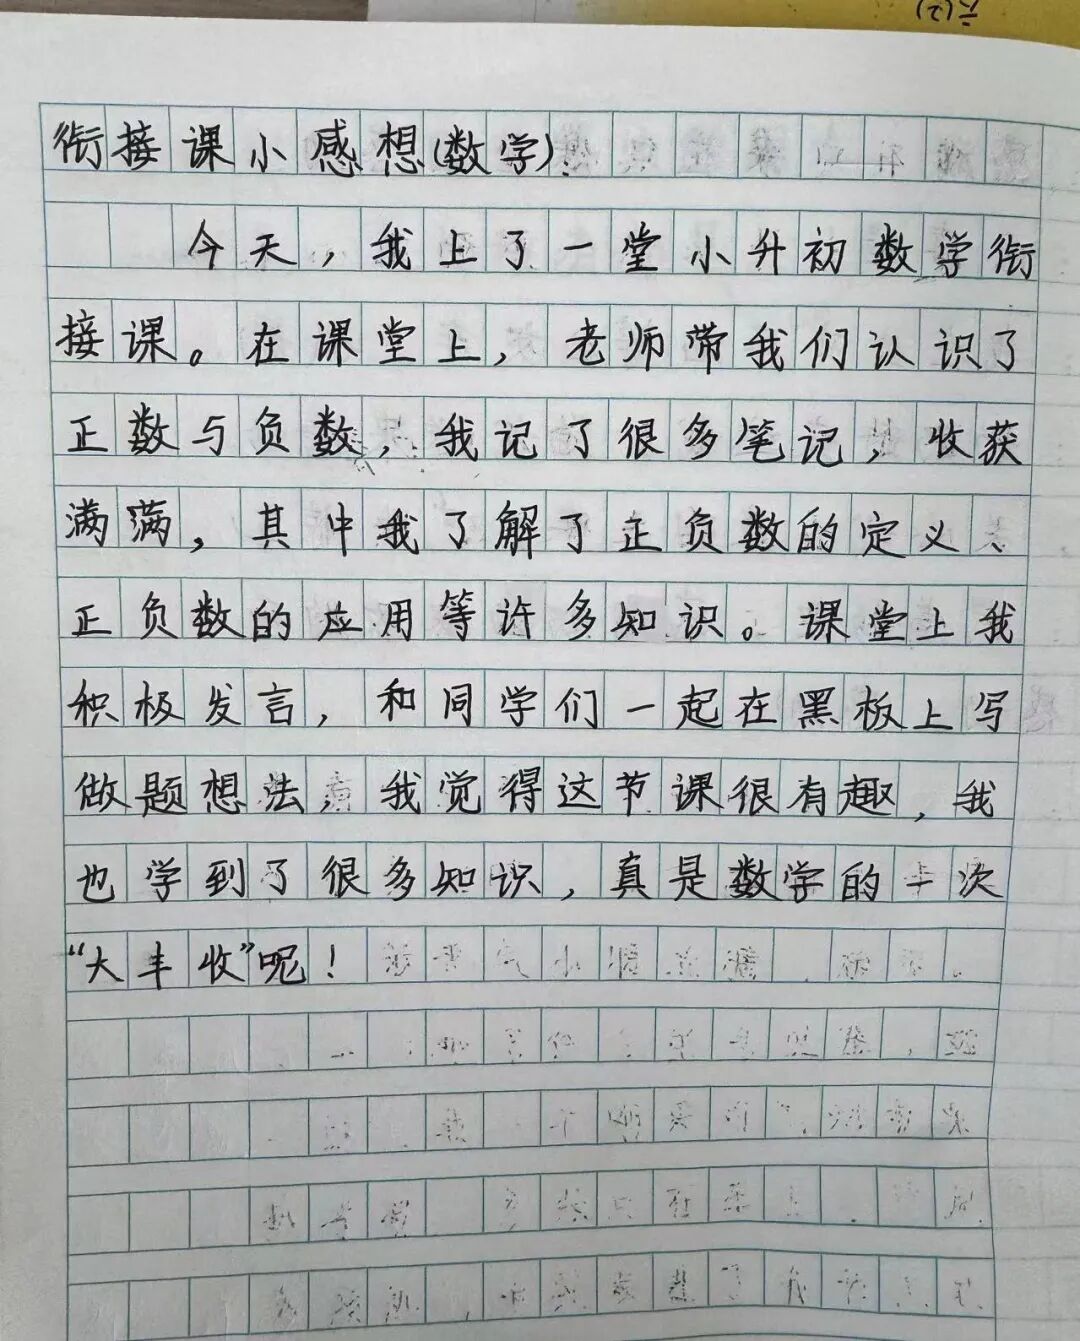 六(2)
衔接课小感想(数学):
今天,我上了一堂小升初数学衔
接课。在课堂上,老师带我们认识了
正数与负数,我记了很多笔记,收获
满满,其中我了解了正负数的定义、
正负数的应用等许多知识。课堂上我
积极发言,和同学们一起在黑板上写
做题想法,我觉得这节课很有趣,我
也学到了很多知识,真是数学的一次
“大丰收”呢!